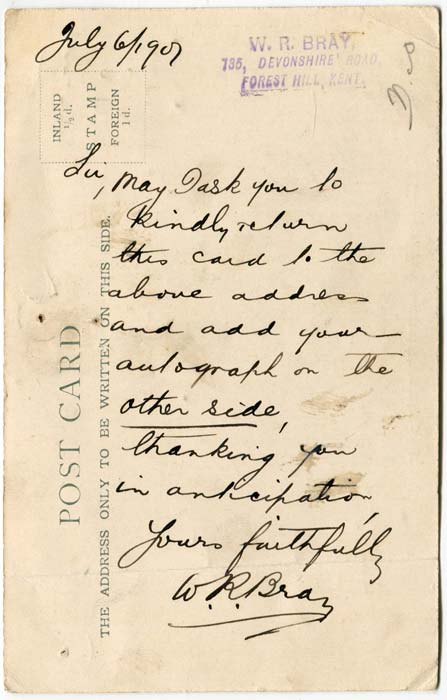 July 6/1907
W. R. BRAY,
135, DEVONSHIRE ROAD,
FOREST HILL, KENT.
INLAND
½d.
STAMP
FOREIGN
1d.
Sir,
May I ask you to
kindly return
this card to the
above address
and add your
autograph on the
other side,
thanking you
in anticipation,
Yours faithfully
W. R. Bray
POST CARD
THE ADDRESS ONLY TO BE WRITTEN ON THIS SIDE.